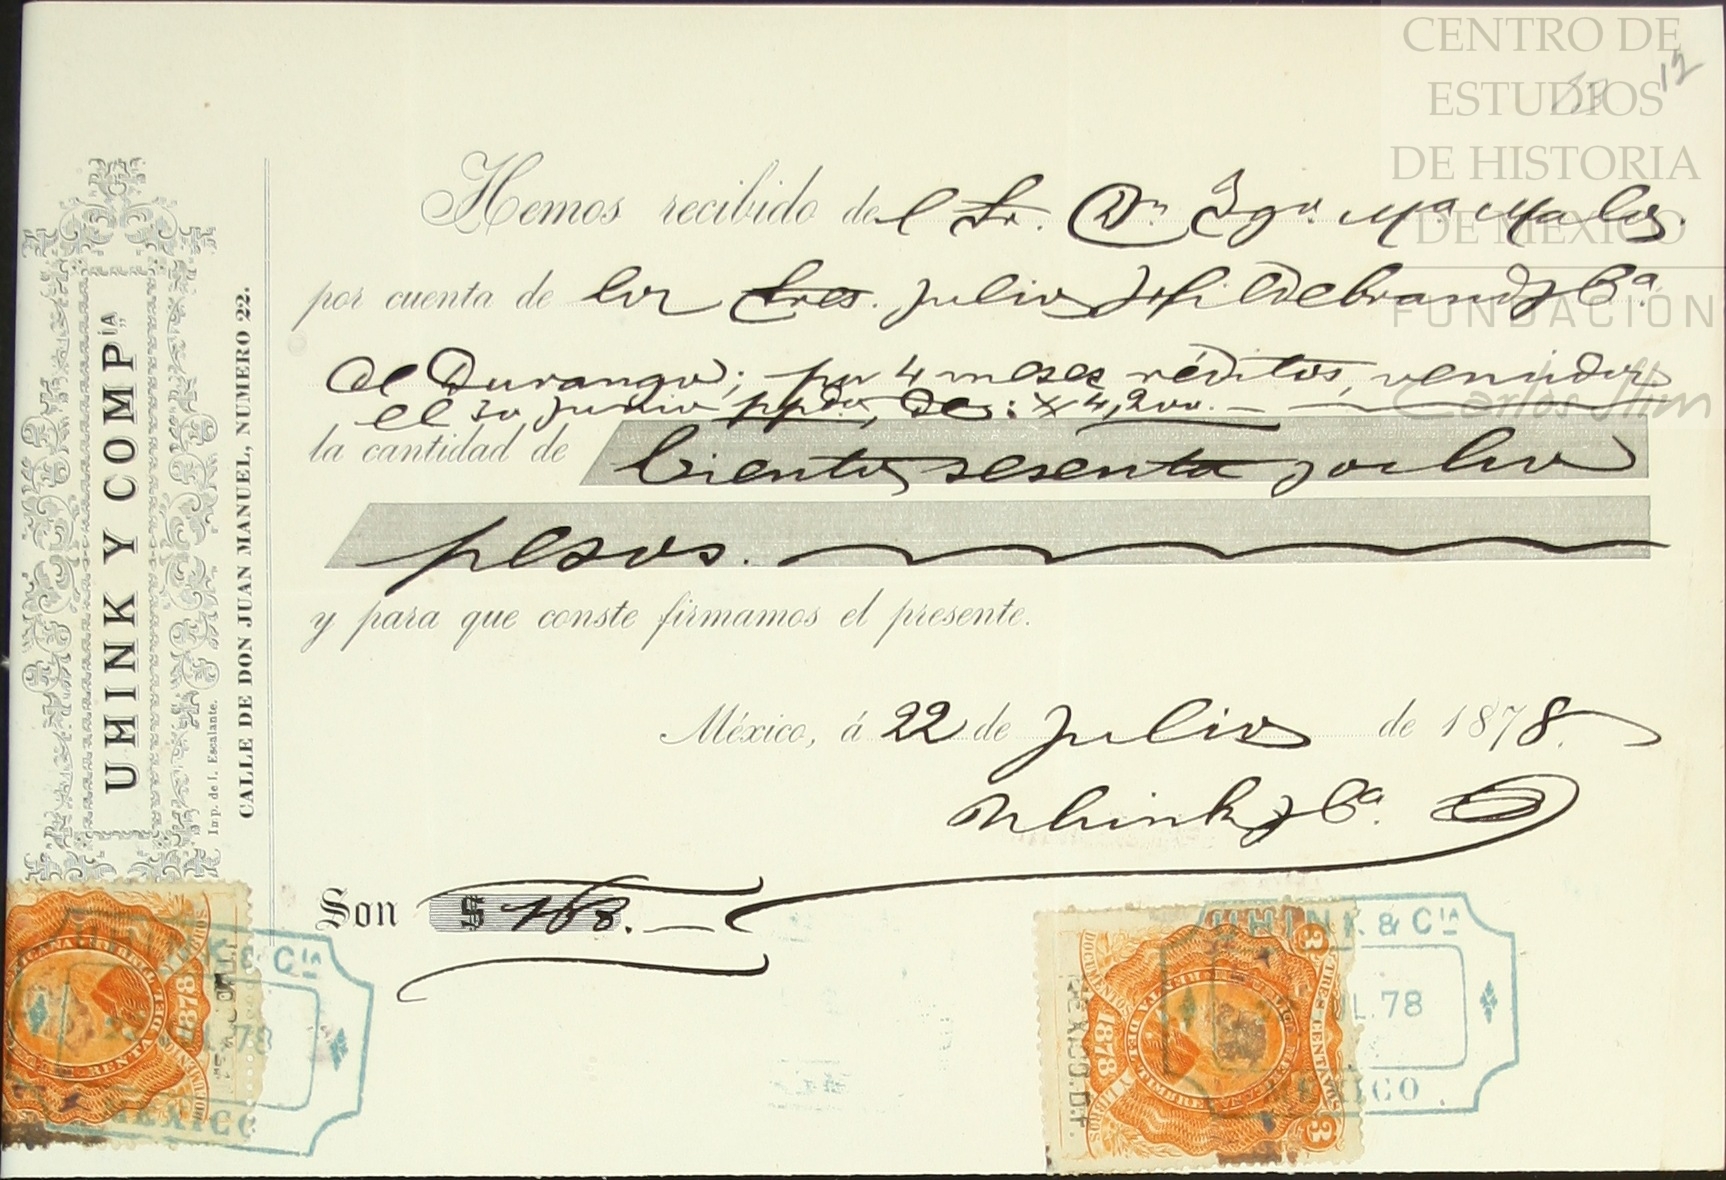 CENTRO DE
ESTUDIOS
DE HISTORIA
DE MÉXICO
FUNDACIÓN
Carlos Slim
12
13
UHINK Y COMPÍA
Imp. de I. Escalante.
CALLE DE DON JUAN MANUEL, NUMERO 22.
Hemos recibido del Sr. Dn Igno. Ma. Malos.
por cuenta de los Sres. Julio Hildebrand y Ca.
de Durango; por 4 meses réditos, vencidos
el 30 Junio ppdo, de: $ 4,200.
la cantidad de Ciento sesenta y ocho
pesos.
y para que conste firmamos el presente.
México, á 22 de Julio de 1878.
Uhink y Ca.
Son $ 168.
UHINK & CIA
JUL. 78
MEXICO
RENTA DEL
1878
DOCUMENTOS
UHINK & CIA
JUL. 78
MEXICO
3 TRES CENTAVOS 3
RENTA DEL TIMBRE
1878
DOCUMENTOS Y LIBROS
MEXICO. D.F.